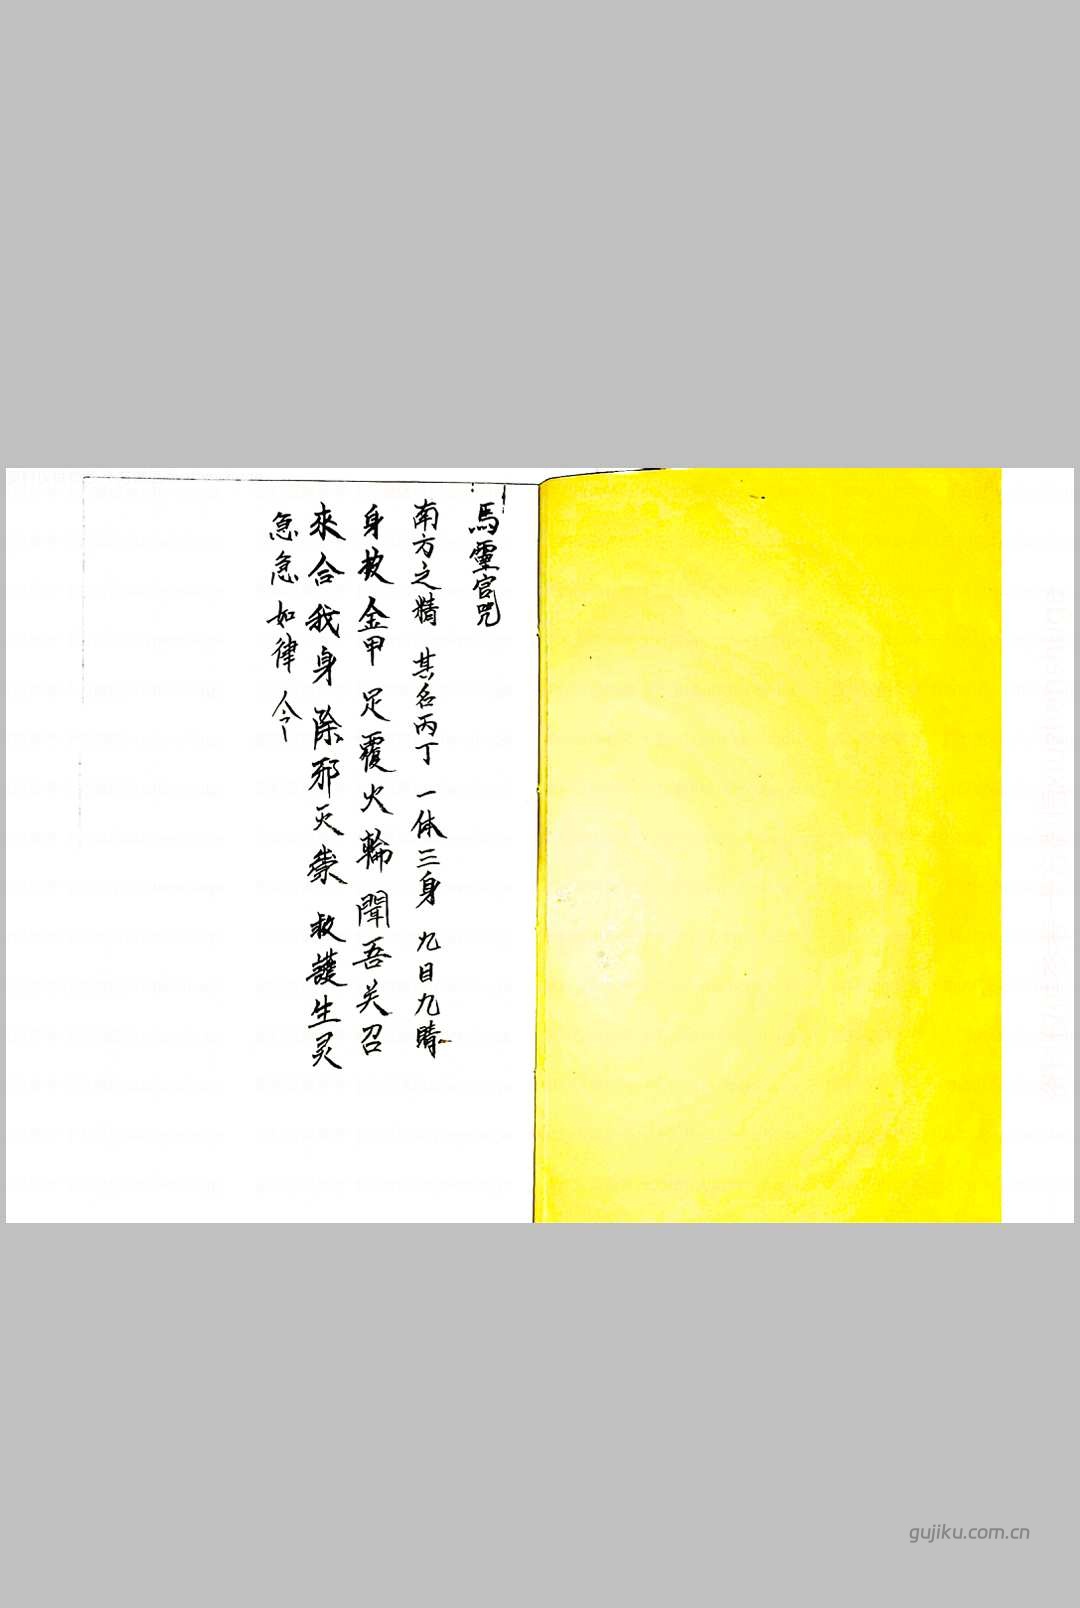 馬靈官咒
南方之精 其名丙丁 一体三身 九目九睛
身披金甲 足覆火輪 聞吾关召
來合我身 除邪灭祟 救護生灵
急急如律令
gujiku.com.cn